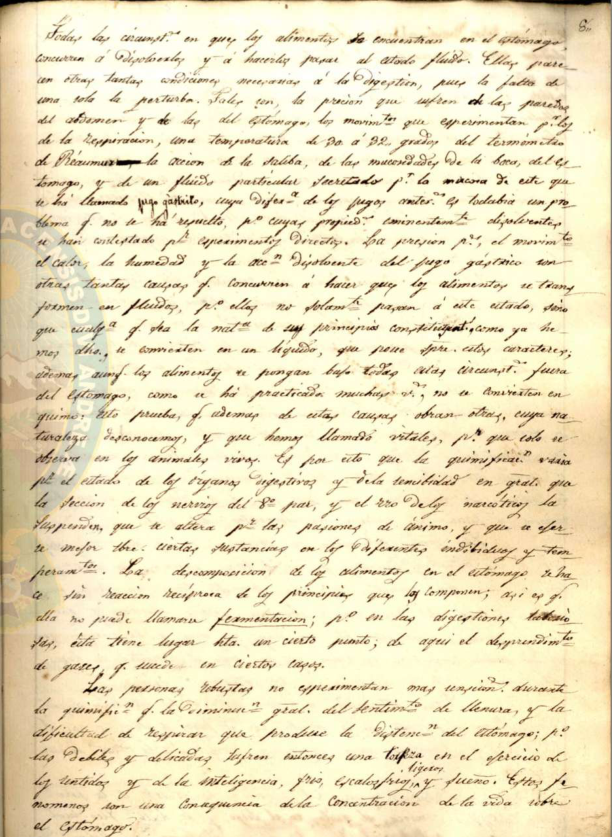 Todas las circunst.s en que los alimentos se encuentran en el estómago,
concurren á disolverlos y á hacerlos pasar al estado fluido. Ellas pare-
cen otras tantas condiciones necesarias á la digestion, pues la falta de
una sola la perturba. Tales son, la presion que sufren de las paredes
del abdomen y de las del estómago, los movim.tos que esperimentan p.r los
de la respiracion, una temperatura de 30 á 32 grados del termómetro
de Réaumur la accion de la saliba, de las mucosidades de la boca, del es-
tomago, y de un fluido particular secretado p.r la misma de este que
se há llamado jugo gastrico, cuya difer.a de los jugos anter.s es todabia un pro-
blema q. no se há resuelto, p.o cuyas propied.s eminentem.te disolventes
se han contestado p.r esperimentos directos. La presion p.s, el movim.to
el calor, la humedad y la acc.n disolvente del jugo gástrico son
otras tantas causas q. concurren á hacer que los alimentos se trans-
formen en fluidos, p.o ellos no solam.te pasan á este estado, sino
que cualq.a q. sea la nat.a de sus principios constituyent.s, como ya he-
mos dho., se convierten en un líquido, que posee spre. estos caracteres;
ademas aunq. los alimentos se pongan bajo todas estas circunst.s fuera
del estómago, como se há practicado muchas v.s, no se convierten en
quimo: esto prueba, q. ademas de estas causas obran otras, cuya na-
turaleza desconocemos, y que hemos llamado vitales, p.r que solo se
observa en los animales vivos. Es por esto que la quimificac.n varia
p.r el estado de los órganos digestivos y de la sensibilidad en gral. que
la seccion de los nervios del 8.o par, y el uso de los narcóticos la
suspenden, que se altera p.r las pasiones de ánimo, y que se ejer-
ce mejor sbre. ciertas sustancias en los diferentes individuos y tem-
peram.tos. La descomposicion de los alimentos en el estómago se ha-
ce sin reaccion reciproca de los principios que los componen; asi es q.
ella no puede llamarse fermentacion; p.o en las digestiones trabajo-
sas, ésta tiene lugar hta. un cierto punto; de aqui el desprendim.to
de gases, q. sucede en ciertos casos.
Las personas robustas no esperimentan mas durante
la quimific.n q. la diminuc.n gral. del sentim.to de llenura, y la
dificultad de respirar que produce la disten.n del estómago; p.o
las debiles y delicadas sufren entonces una torpeza en el ejercicio de
ligeros
los sentidos y de la inteligencia, frio, escalosfrios, y sueño. Estos fe-
nomenos son una consequencia de la concentracion de la vida sobre
el estómago.